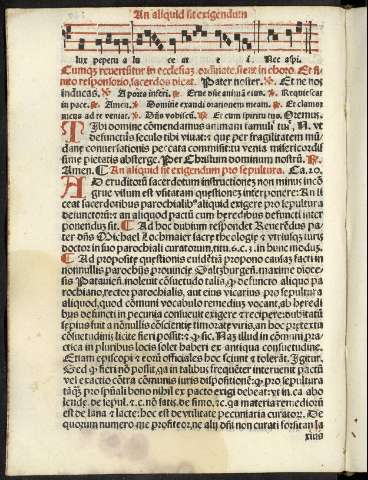 An aliquid sit exigendum
lux perpetua lu ce at e i. Nec aspi.
Cumq̃ reuertuntur in ecclesiaȝ ordinate, stent in choro. Et fi-
nito responsorio, sacerdos dicat. Pater noster. ℟. Et ne nos
inducas. ℟ A porta inferi. ℟. Erue dñe animã eius. ℟ Requiescat
in pace. ℟. Amen. ℟ Domine exaudi orationem meam. ℟. Et clamor
meus ad te veniat. ℟ Dñs vobiscũ. ℟ Et cum spiritu tuo. Oremus.
TIbi domine cõmendamus animam famuli tui N. vt
defunctus seculo tibi viuat: ⁊ que per fragilitatem mũ-
dane conuersationis peccata commisit: tu venia misericordis-
sime pietatis absterge. Per Christum dominum nostrũ. ℟.
Amen. ¶ An aliquid sit exigendum pro sepultura. Ca. 20.
AD eruditõȝ sacerdotum instructiones non minus incõ-
grue visum est vtilitatem questionez interponere: An li-
ceat sacerdotibus parochialibꝰ aliquid exigere pro sepultura
defunctorũ: ⁊ an aliquod pactũ cum heredibus defuncti inter
ponendus sit. ¶ Ad hoc dubium respondet Reuerẽdus pa-
ter dñs Michael Lochmaier sacre theologie ⁊ vtriusqȝ iuris
doctor in suo parochiali curatorum, in hunc modum.
¶ Ad proposite questionis euidẽtiã propono causaȝ facti: in
nonnullis parochijs prouincie Saltzburgeñ. maxime dioce-
sis Patauieñ. inoleuit cõsuetudo talis, ꝙ defuncto aliquo pa
rochiano, rector parochialis, aut eius vicarius pro sepultura
aliquod, quod cõmuni vocabulo remediũ vocant, ab heredi
bus defuncti in pecunia consueuit exigere ⁊ recipere: dubitatũ
sepius fuit a nõnullis cõscientie timorate viris, an hoc pretextu
cõsuetudinis licite fieri possit: ⁊ ꝙ sic. Naȝ illud in cõmuni pra-
ctica in pluribus locis solet haberi ex antiqua consuetudine.
Etiam episcopi ⁊ eorũ officiales hoc sciunt ⁊ tolerãt. Igitur.
Sed ꝙ fieri nõ possit, ꝗa in talibus frequẽter interuenit pactũ
vel exactio cõtra cõmunis iuris dispositionẽ: ꝙ pro sepultura
tãqȝ pro spũali bono nihil ex pacto exigi debeat: vt in ca. abo
lende. de sepul. ⁊ c. nõ satis. de simo. ⁊c. ꝗa materia remediorũ
est de lana ⁊ lacte: hoc est de vtilitate pecuniaria curatorũ. De
quorum numero me profiteor, ne alij dñi non curati forsitan la
xius